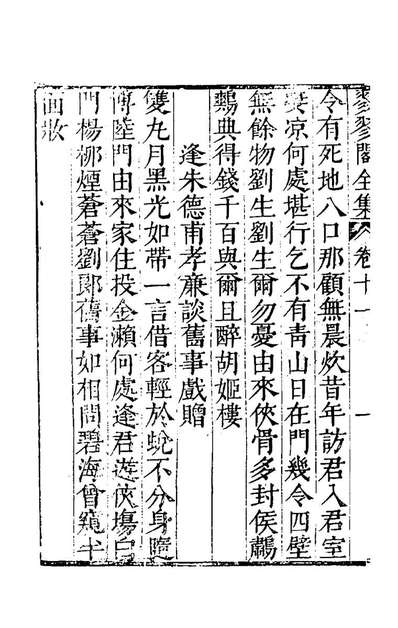 翏翏閣全集 卷十一 一
令有死地八口那顧無晨炊昔年訪君入君室
淒凉何處堪行乞不有青山日在門幾令四壁
無餘物劉生劉生爾勿憂由來俠骨多封侯鷫
鸘典得錢千百與爾且醉胡姬樓
逢朱德甫孝廉談舊事戲贈
雙九月黑光如帶一言借客輕於蛻不分身隨
博陸門由來家住投金瀨何處逢君遊俠塲白
門楊栁煙蒼蒼劉郎舊事如相問碧海曾窺半
面妝